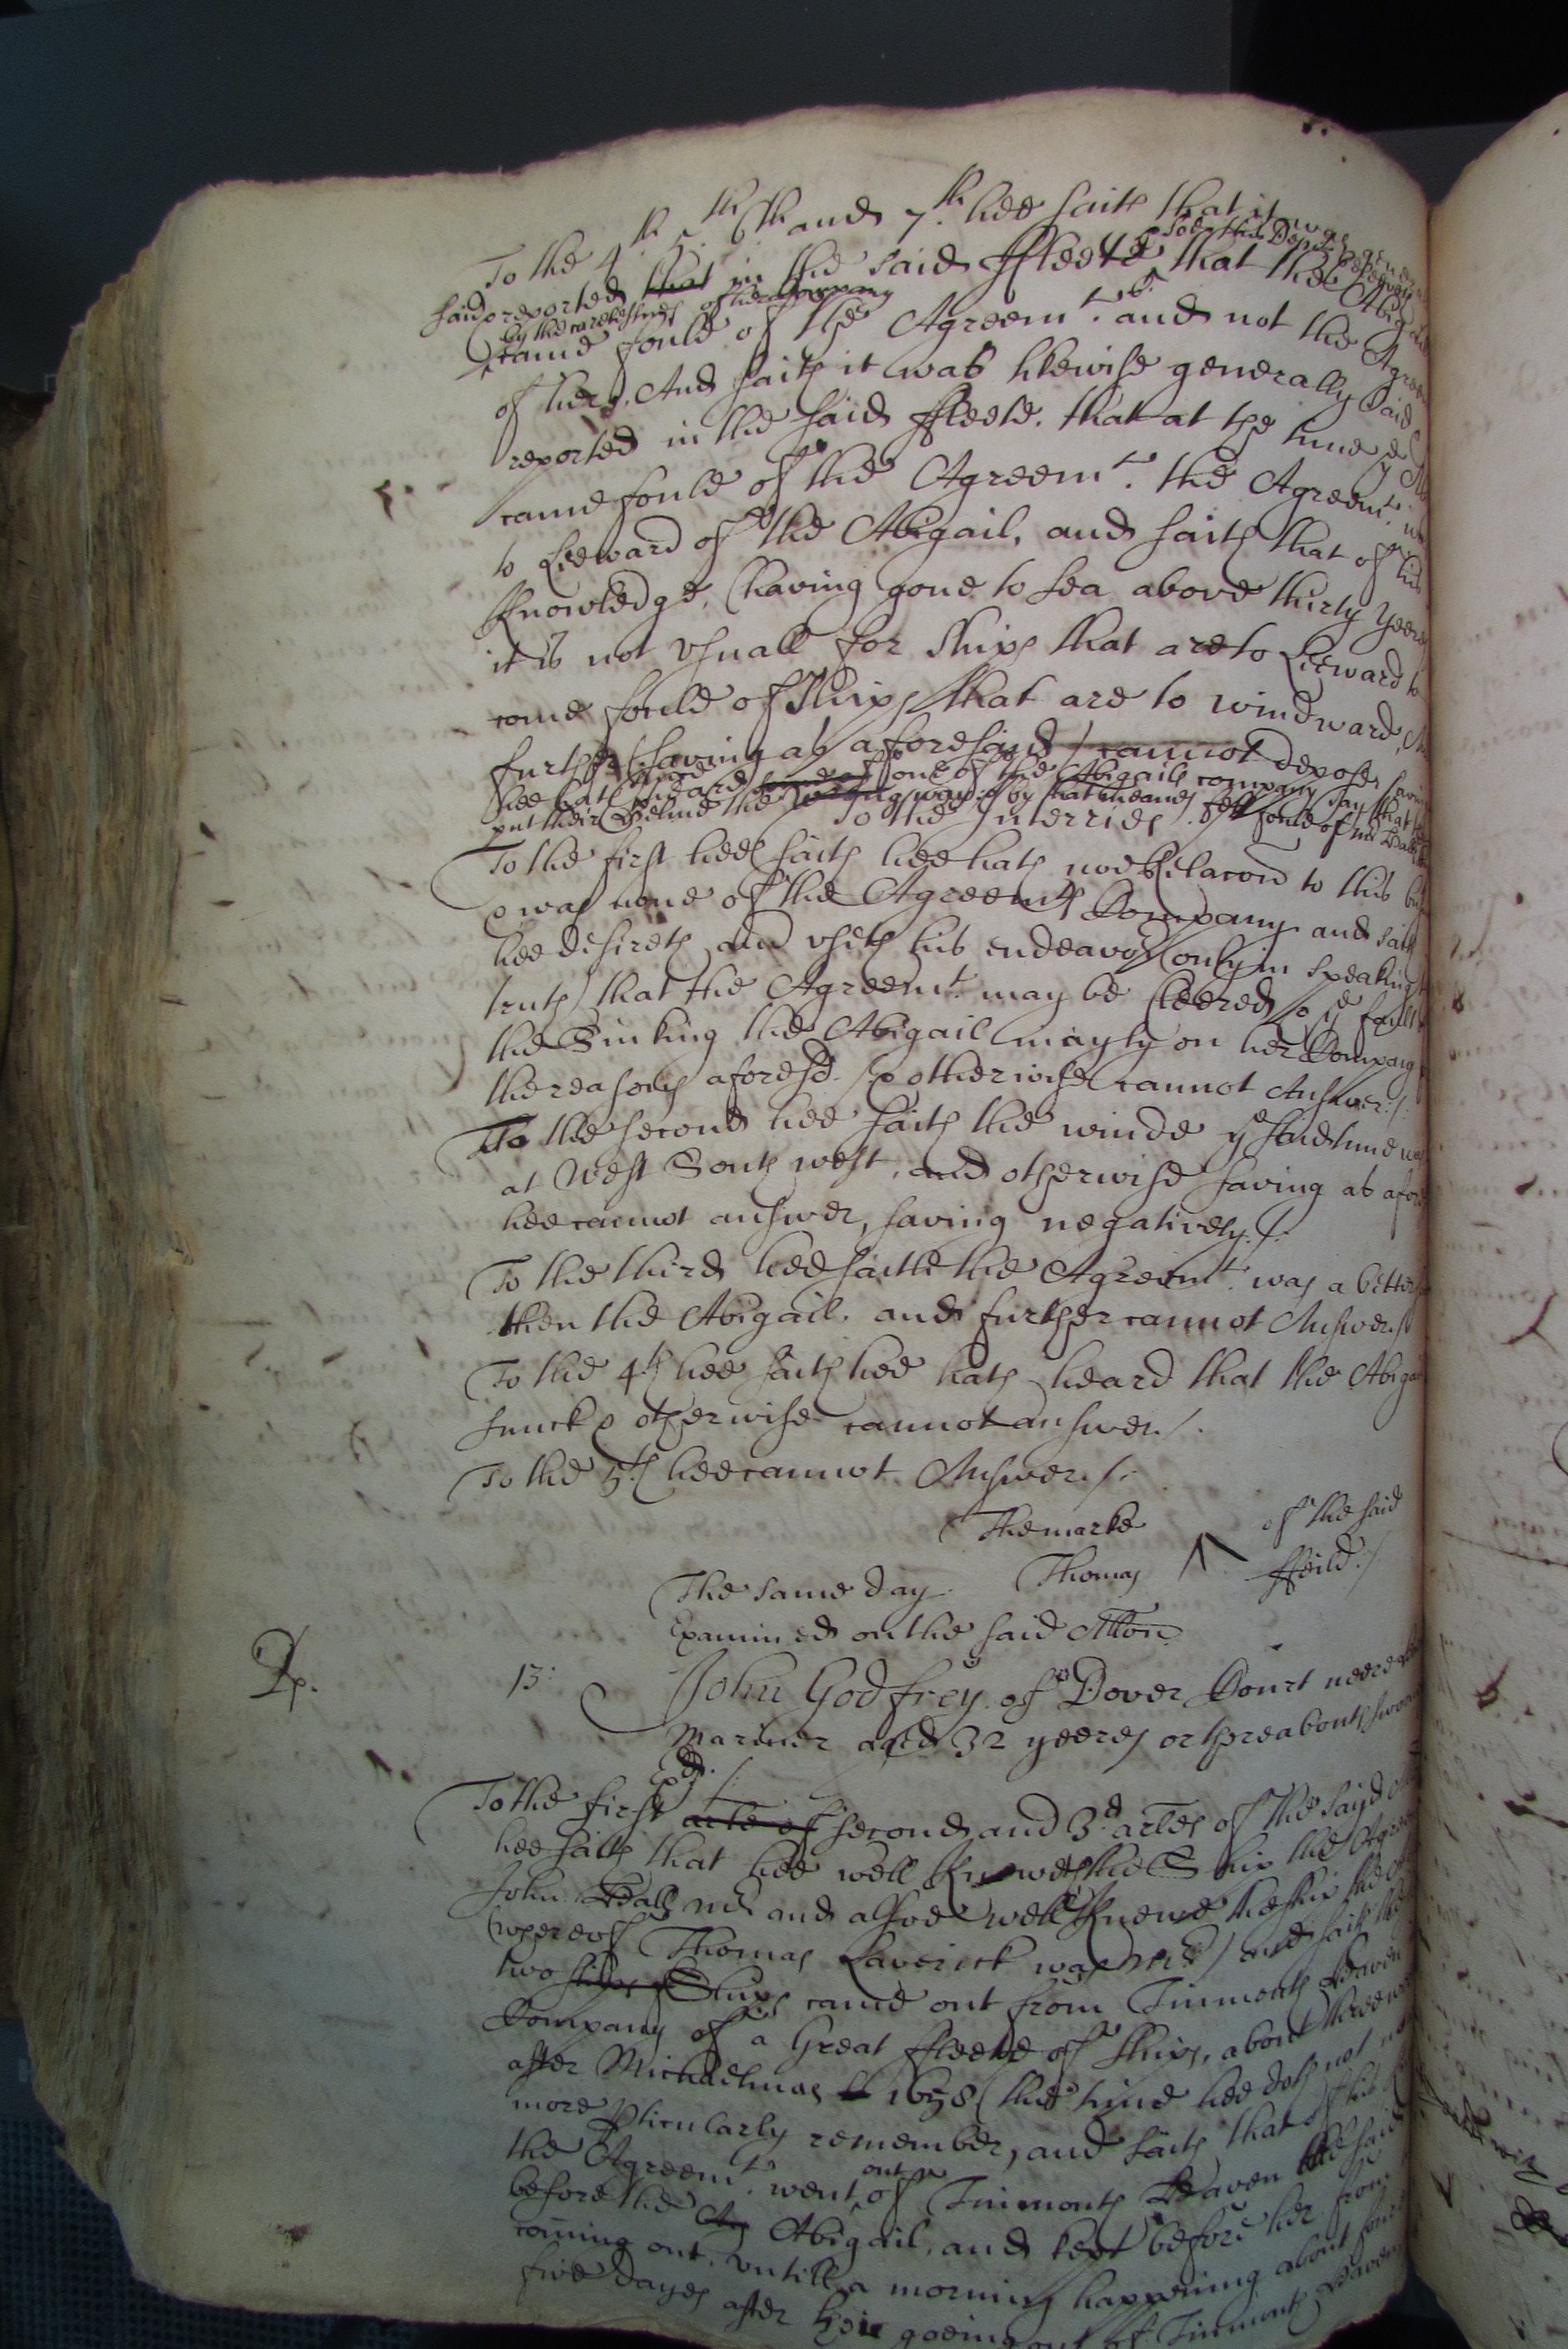 To the 4th 5th 6th and 7th. hee saith that it was gene
said & reported that in the said ffleete that the Abigail
soe this Depot
by the carelesness of her Company
came foule of the Agreemt. and not the Agree
of her. And saith it was likewise generally said
reported in the said ffleete. that at the time ye
came foule of the Agreemt. the Agreemt.
to Leeward of the Abigail, and saith that of his
knowledge, (having gone to sea above thirty yeere
it is not usuall for ships that are to Leeward to
come foule of ships that are to windward,
further (saving as aforesaid) cannot depose, saving
hee hath heard some of the Abigails company say that
put their Helme the wrong way & by that meanes fell foule of
To the Interries./
To the first hee saith hee hath noe Relacon to this
& was none of the Agreemts Company and saith
hee desireth and useth his endeavor (only in speaking
truth) that the Agreemt. may be cleered so ye fault
the Sinking the Abigail may ly on her Company
the reasons aforesd. & otherwise cannot Answer./.
To the second hee saith the winde ye said time was
at West South west, and otherwise saving as afore
hee cannot answer, saving negatively./.
To the third hee saith the Agreemt. was a better
then the Abigail. and further cannot Answer./
To the 4th hee saith hee hath heard that the Abigail
sunck & otherwise cannot answer./.
To the 5th hee cannot Answer./.
The marke of the said
Thomas ffeild./
The same day.
Examined on the said Allon
Rp. 13: John Godfrey. of Dover Court neere
Mariner aged 32 yeeres or thereabouts sworne
Exd./.
To the first arle of second and 3d arles of the sayd
hee saith that hee well knoweth the Ship the Agree
John Ball mr and alsoe well knewe the ship the
(whereof Thomas Laverick was Mr.) and saith the
two ships Ships came out from Tinmouth Haven
Company of a Great ffleete of ships, about three
after Michaelmas 1658 (the time hee doth not
more pticularly remember, and saith that
the Agreemt. went out of Tinmouth Haven the said
before the Ag Abigail, and kept before her from
coming out, untill a morning happening about foure
five dayes after their goeing out of Tinmouth Haven